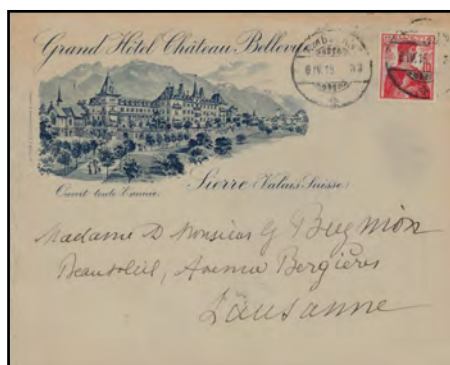 Grand Hôtel Château Bellevue
HELVETIA
Ouvert toute l'année.
Sierre (Valais Suisse)
Madame & Monsieur G Bugnion
Beausoleil, Avenue Bergières
Lausanne